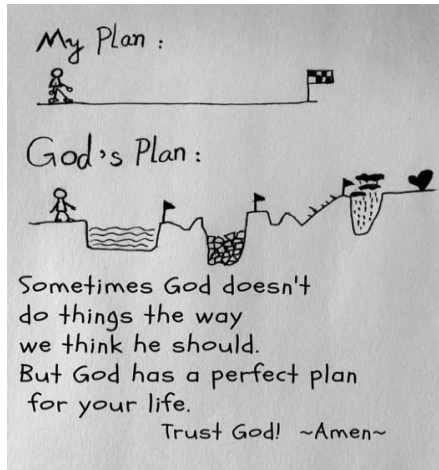 My Plan :
God's Plan :
Sometimes God doesn't
do things the way
we think he should.
But God has a perfect plan
for your life.
Trust God! ~Amen~